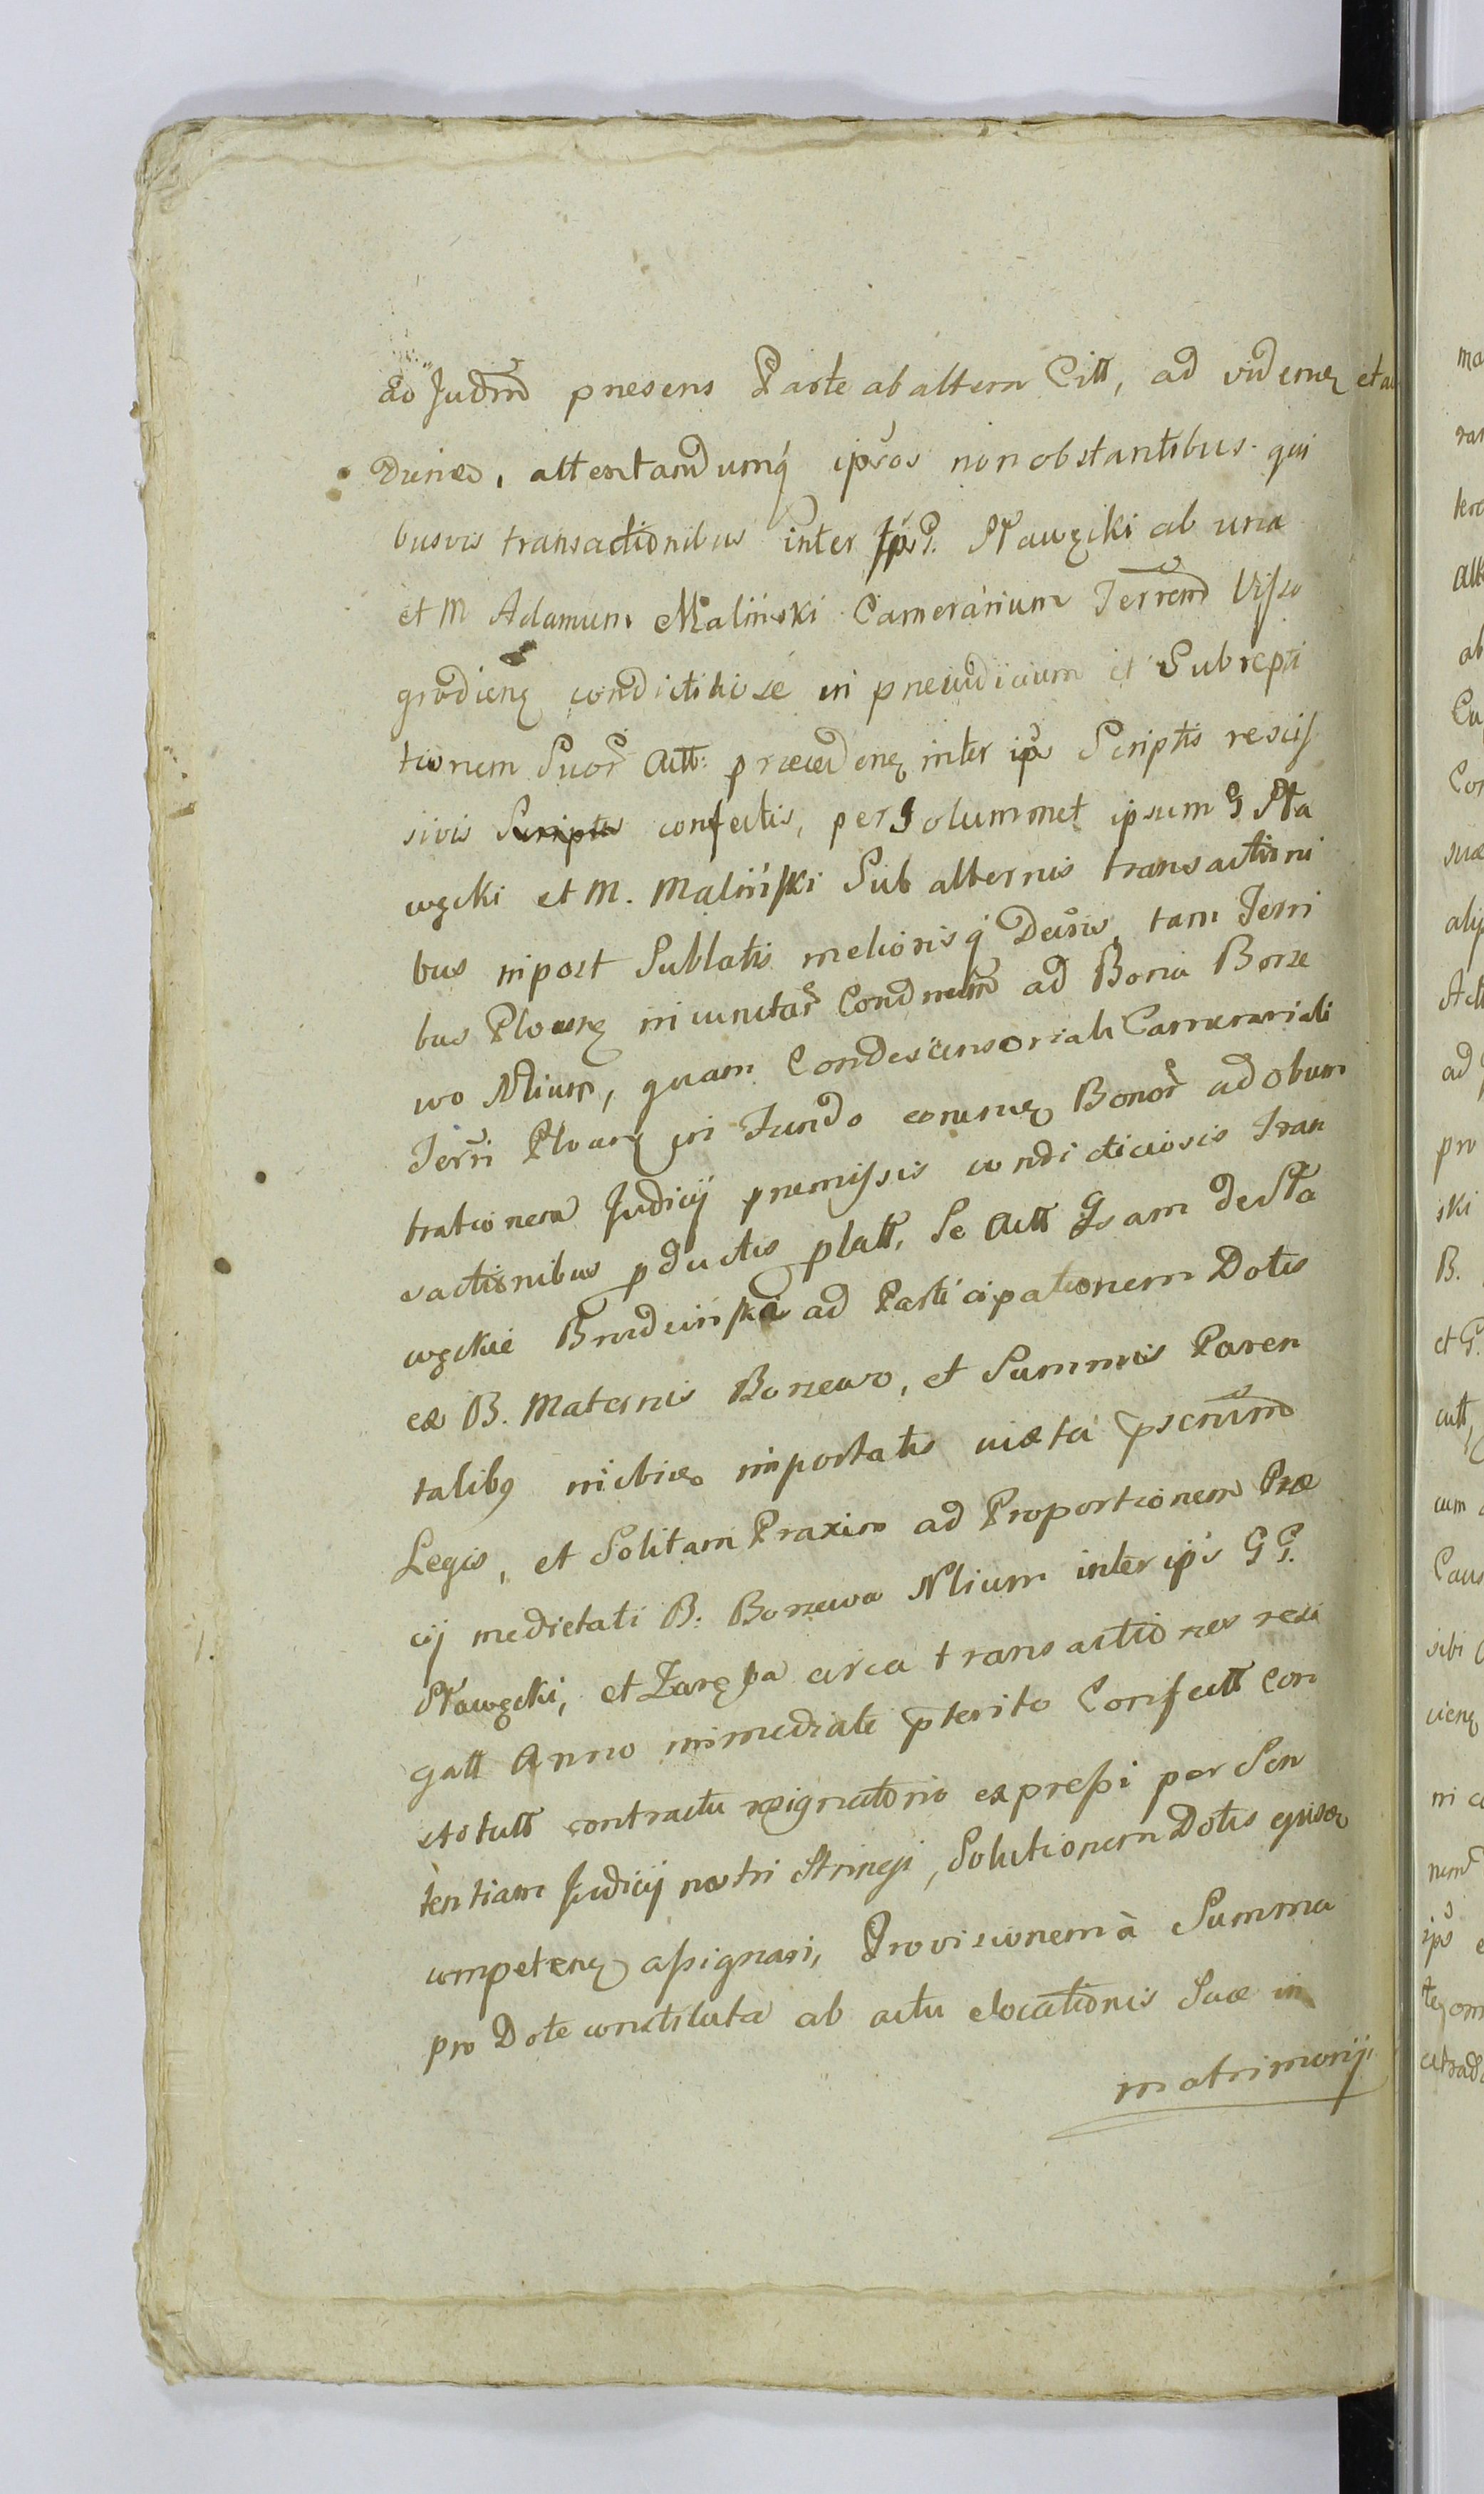 ad Judīnd presens Parte ab altern Citt, ad vidienq et au
diend, attentandumq ipsos non obstantibus qui
busvis transactionibus inter Ip͂s G. Sławęcki ab una
et M Adamum Maliński Camerarium Terrend Visso
grodienq condictitiose in preiudicium et Subrepti
tionem Suor Actt: præcedenq inter ips Scriptis resciss
sivis Scriptis confectis, per Solummet ipsum G Sła
węcki et M. Maliński Sub alternis transactioni
bus inpost Sublatis meliorisq Decisis, tam Terri
bus Plocenq in cunctar Condnatm ad Bona Borze
wo Ntium, quam Condescensoriali Camerariali
Terri Plocenq in Fundo eorumq Bonor ad obum
brationem Judicij premissis condicticiosis Tran
sactionibus pductis platt, Se Actt Gsam de Sła
węckie Brudzińska ad Participationem Dotis
ex B. Maternis Borzewo, et Summis Paren
talibq importatis iuxta pscrīnd
Legis, et Solitam Praxim ad Proportionem Præ
cij medietati B. Borzewa Ntium inter ips G G.
Sławęcki, et Zaręba circa transactiones resi
gatt Anno immediate pterito Confectt con
stotutt contractu resignatorio expressi per Sen
tentiam Judicij nostri Stringi, Solutionem Dotis ejusd
competenq assignari, Provisionem à Summa
pro Dote constituta ab actu elocationis Suæ in
matrimonij.
ma
ran
alt
ab
Cu
Con
suæ
Act
ad
pro
ski
B.
et G.
cutt,
cum
Caus
sibi
cienq
ni
ips